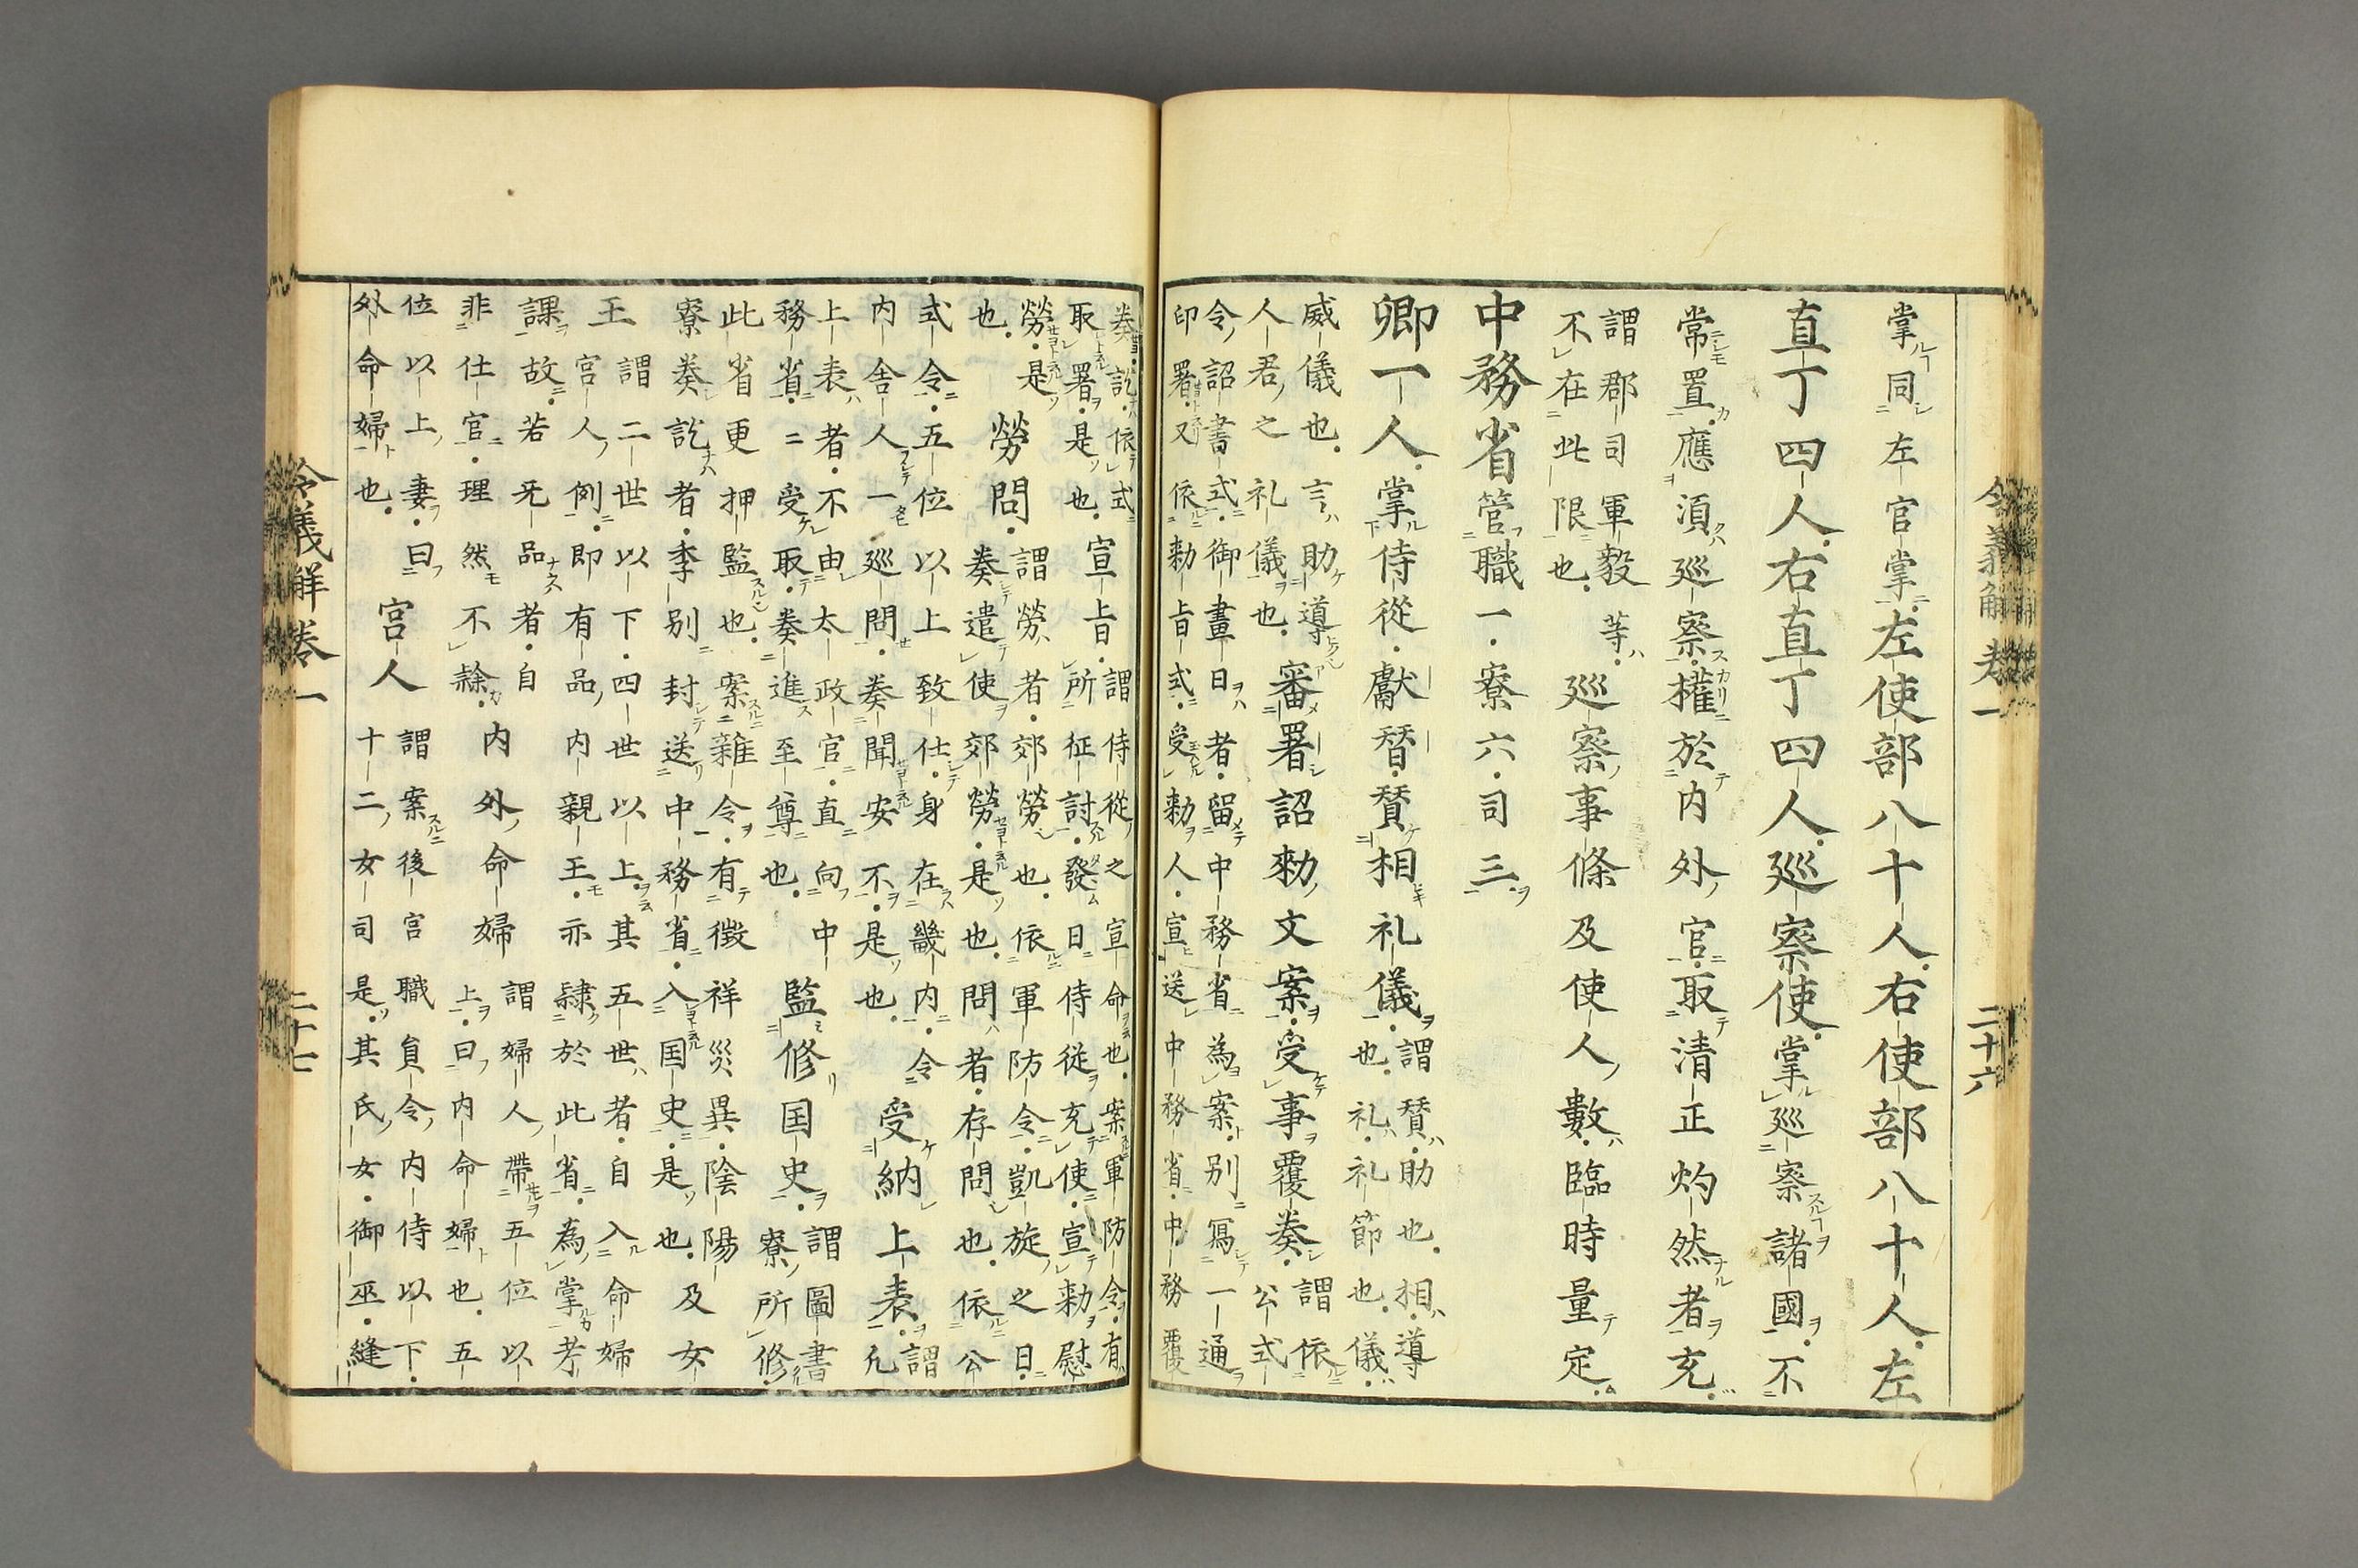 令義解卷一 二十六
掌同左官掌左使部八十人右使部八十人左
直丁四人右直丁四人巡察使掌巡察諸國不
常置應須巡察權於内外官取清正灼然者充
謂郡司軍毅等
不在此限也
巡察事條及使人數臨時量定
中務省管職一寮六司三
卿一人掌侍從獻替賛相礼儀
謂賛助也相導
也礼礼節也儀
威儀也言助導
人君之礼儀也
審署詔勅文案受事覆奏
謂依
公式
令詔書式御畫日者留中務省為案別寫一通
印署又依勅旨式受勅人宣送中務省中務覆
奏訖依式
取署是也
宣旨
謂侍從之宣命也案軍防令有
所征討發日侍從充使宣勅慰
勞是
也
勞問
謂勞者郊勞也依軍防令凱旋之日
奏遣使郊勞是也問者存問也依公
式令五位以上致仕身在畿内令
内舍人一巡問奏聞安不是也
受納上表
謂
凡
上表者不由太政官直向中
務省二受取奏進至尊也
監修国史
謂圖書
寮所修
此省更押監也案雜令有徴祥災異陰陽
寮奏訖者季別封送中務省入国史是也
及女
王
謂二世以下四世以上其五世者自入命婦
宮人例即有品内親王亦隷於此省為掌考
課故若旡品者自
非仕官理然不隷
内外命婦
謂婦人帶五位以
上曰内命婦也五
位以上妻曰
外命婦也
宮人
謂案後宮職員令内侍以下
十二女司是其氏女御巫縫
令義解卷一 二十七